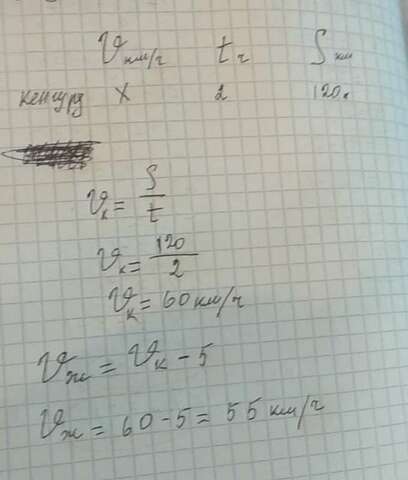 V км/ч t ч S км
кенгуру X 2 120
Vк = S/t
Vк = 120/2
Vк = 60 км/ч
Vж = Vк - 5
Vж = 60 - 5 = 55 км/ч